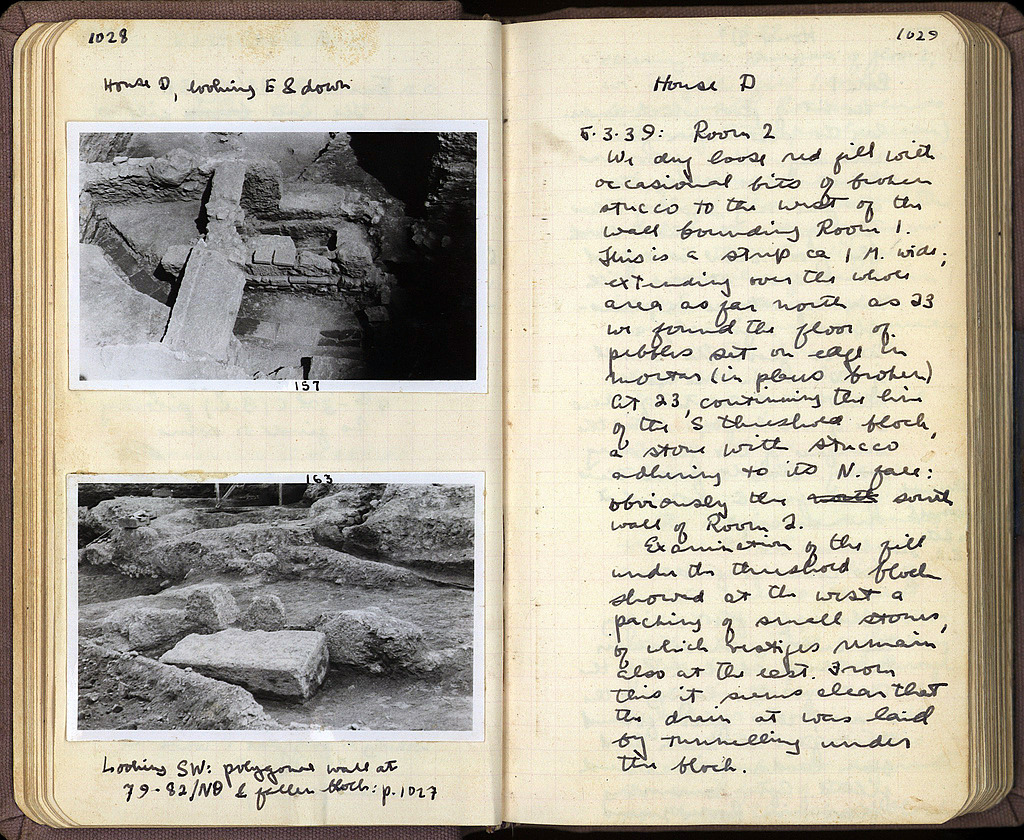 1028
House D, looking E & down
157
163
Looking SW: polygonal wall at
79-82/ΝΘ & fallen block: p. 1027
1029
House D
6.3.39: Room 2
We dug loose red fill with
occasional bits of broken
stucco to the west of the
wall bounding Room 1.
This is a strip ca 1 M. wide;
extending over the whole
area as far north as 23
we found the floor of
pebbles set on edge in
mortar (in places broken)
At 23, continuing the line
of the S threshold block,
a stone with stucco
adhering to its N. face:
obviously the north south
wall of Room 2.
Examination of the fill
under the threshold block
showed at the west a
packing of small stones,
of which vestiges remain
also at the east. From
this it seems clear that
the drain at was laid
by tunnelling under
the block.